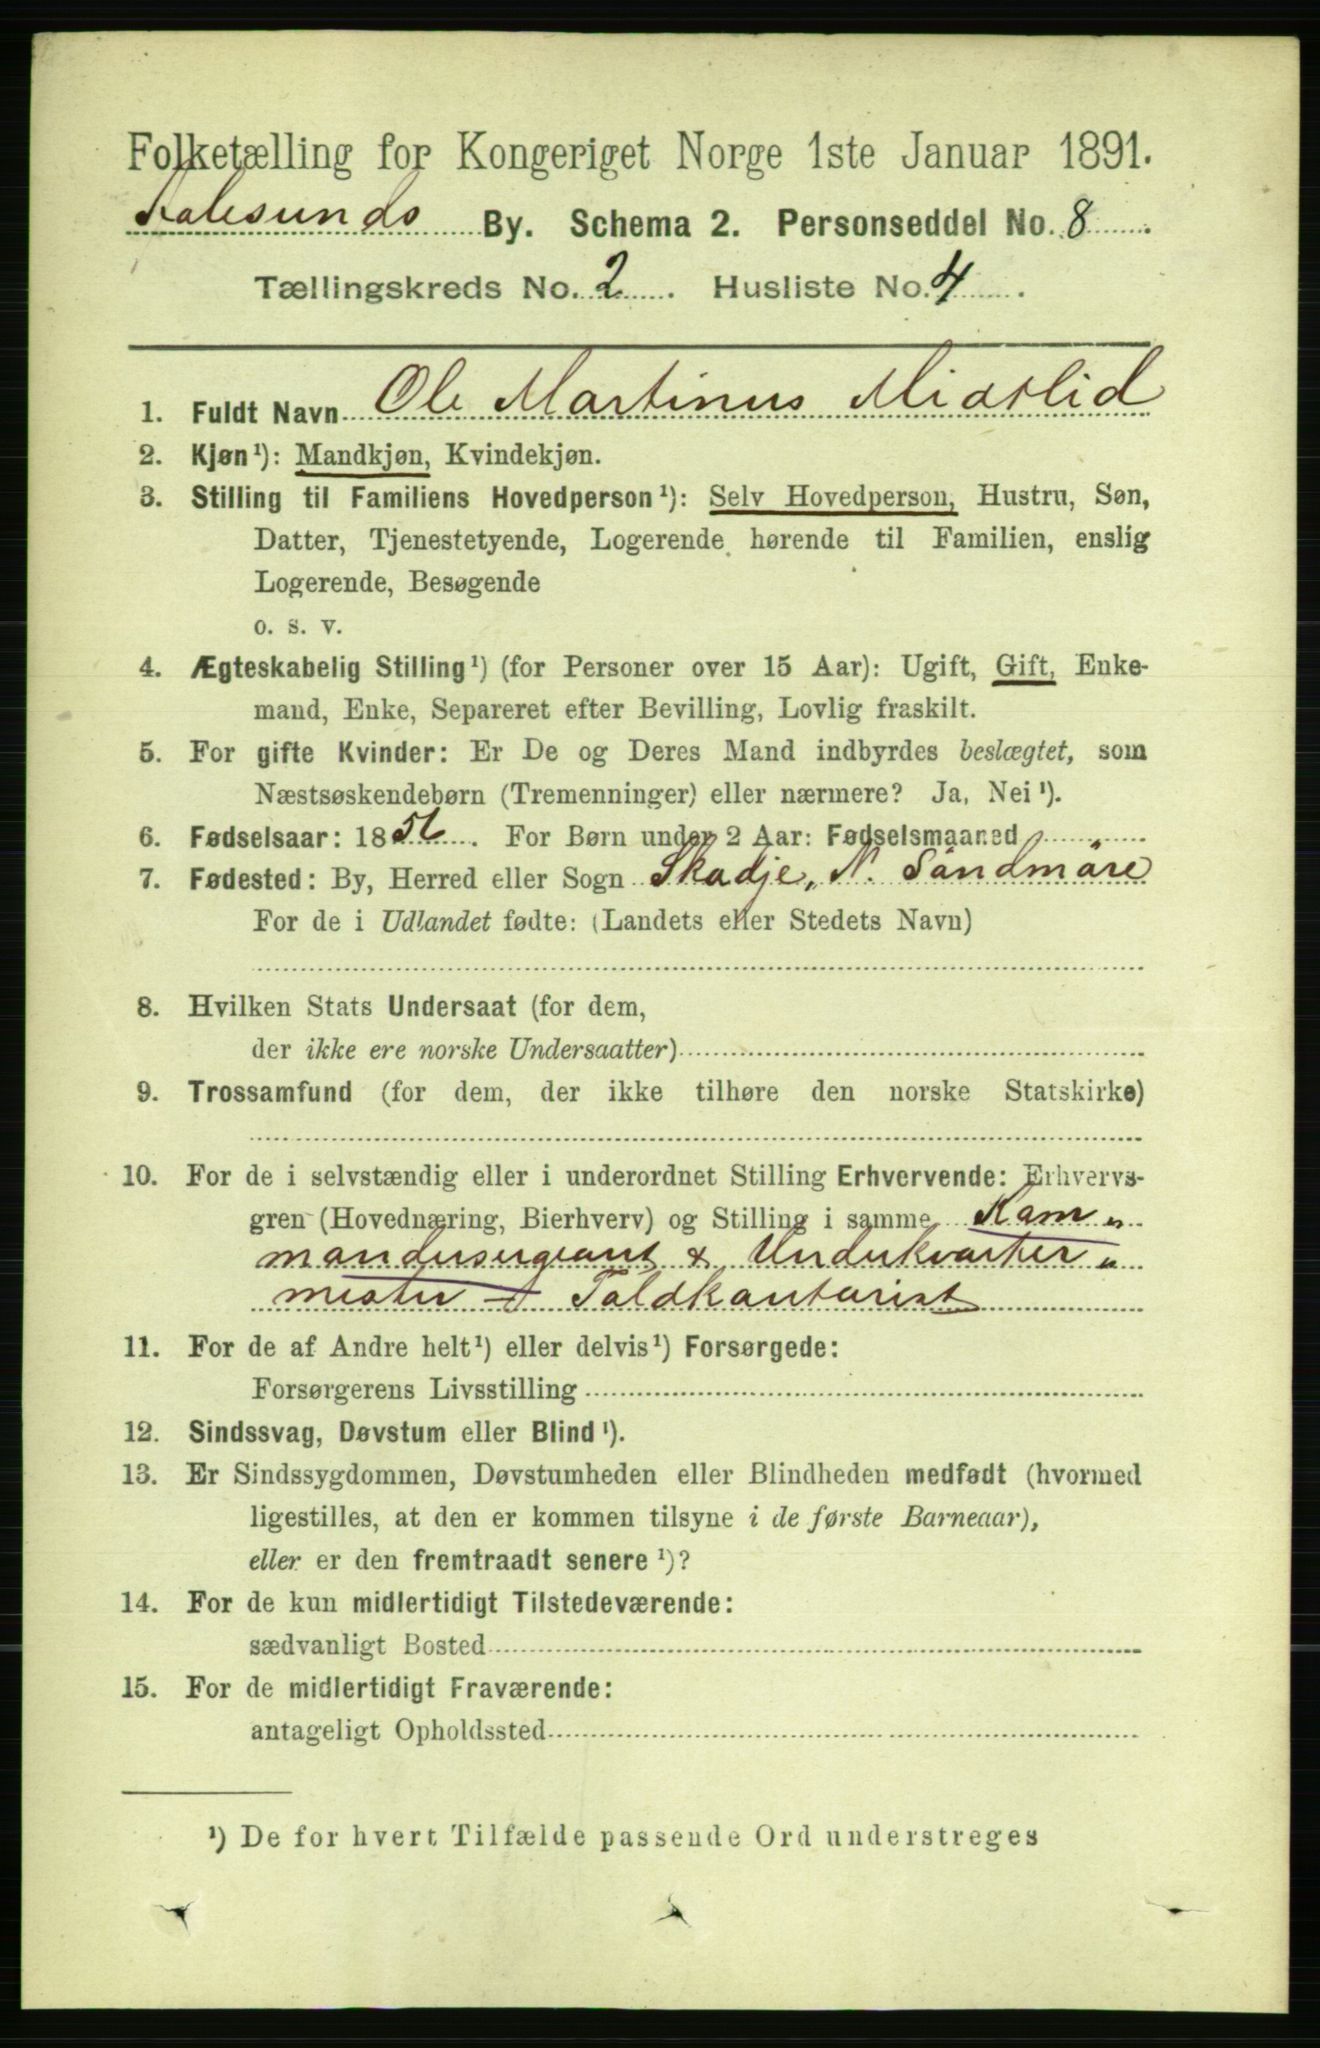 Folketælling for Kongeriget Norge 1ste Januar 1891.
Aalesunds By. Schema 2. Personseddel No. 8
Tællingskreds No. 2. Husliste No. 4.
1. Fuldt Navn Ole Martinus Midtlid
2. Kjøn¹): Mandkjøn, Kvindekjøn.
3. Stilling til Familiens Hovedperson¹): Selv Hovedperson, Hustru, Søn,
Datter, Tjenestetyende, Logerende hørende til Familien, enslig
Logerende, Besøgende
o. s. v.
4. Ægteskabelig Stilling¹) (for Personer over 15 Aar): Ugift, Gift, Enke-
mand, Enke, Separeret efter Bevilling, Lovlig fraskilt.
5. For gifte Kvinder: Er De og Deres Mand indbyrdes beslægtet, som
Næstsøskendebørn (Tremenninger) eller nærmere? Ja, Nei¹).
6. Fødselsaar: 1856. For Børn under 2 Aar: Fødselsmaaned
7. Fødested: By, Herred eller Sogn Skodje, N. Söndmöre
For de i Udlandet fødte: (Landets eller Stedets Navn)
8. Hvilken Stats Undersaat (for dem,
der ikke ere norske Undersaatter)
9. Trossamfund (for dem, der ikke tilhøre den norske Statskirke)
10. For de i selvstændig eller i underordnet Stilling Erhvervende: Erhvervs-
gren (Hovednæring, Bierhverv) og Stilling i samme Kom„
mandersergeant & Underkvarter„
mester & Toldkontorist
11. For de af Andre helt¹) eller delvis¹) Forsørgede:
Forsørgerens Livsstilling
12. Sindssvag, Døvstum eller Blind¹).
13. Er Sindssygdommen, Døvstumheden eller Blindheden medfødt (hvormed
ligestilles, at den er kommen tilsyne i de første Barneaar),
eller er den fremtraadt senere¹)?
14. For de kun midlertidigt Tilstedeværende:
sædvanligt Bosted
15. For de midlertidigt Fraværende:
antageligt Opholdssted
¹) De for hvert Tilfælde passende Ord understreges